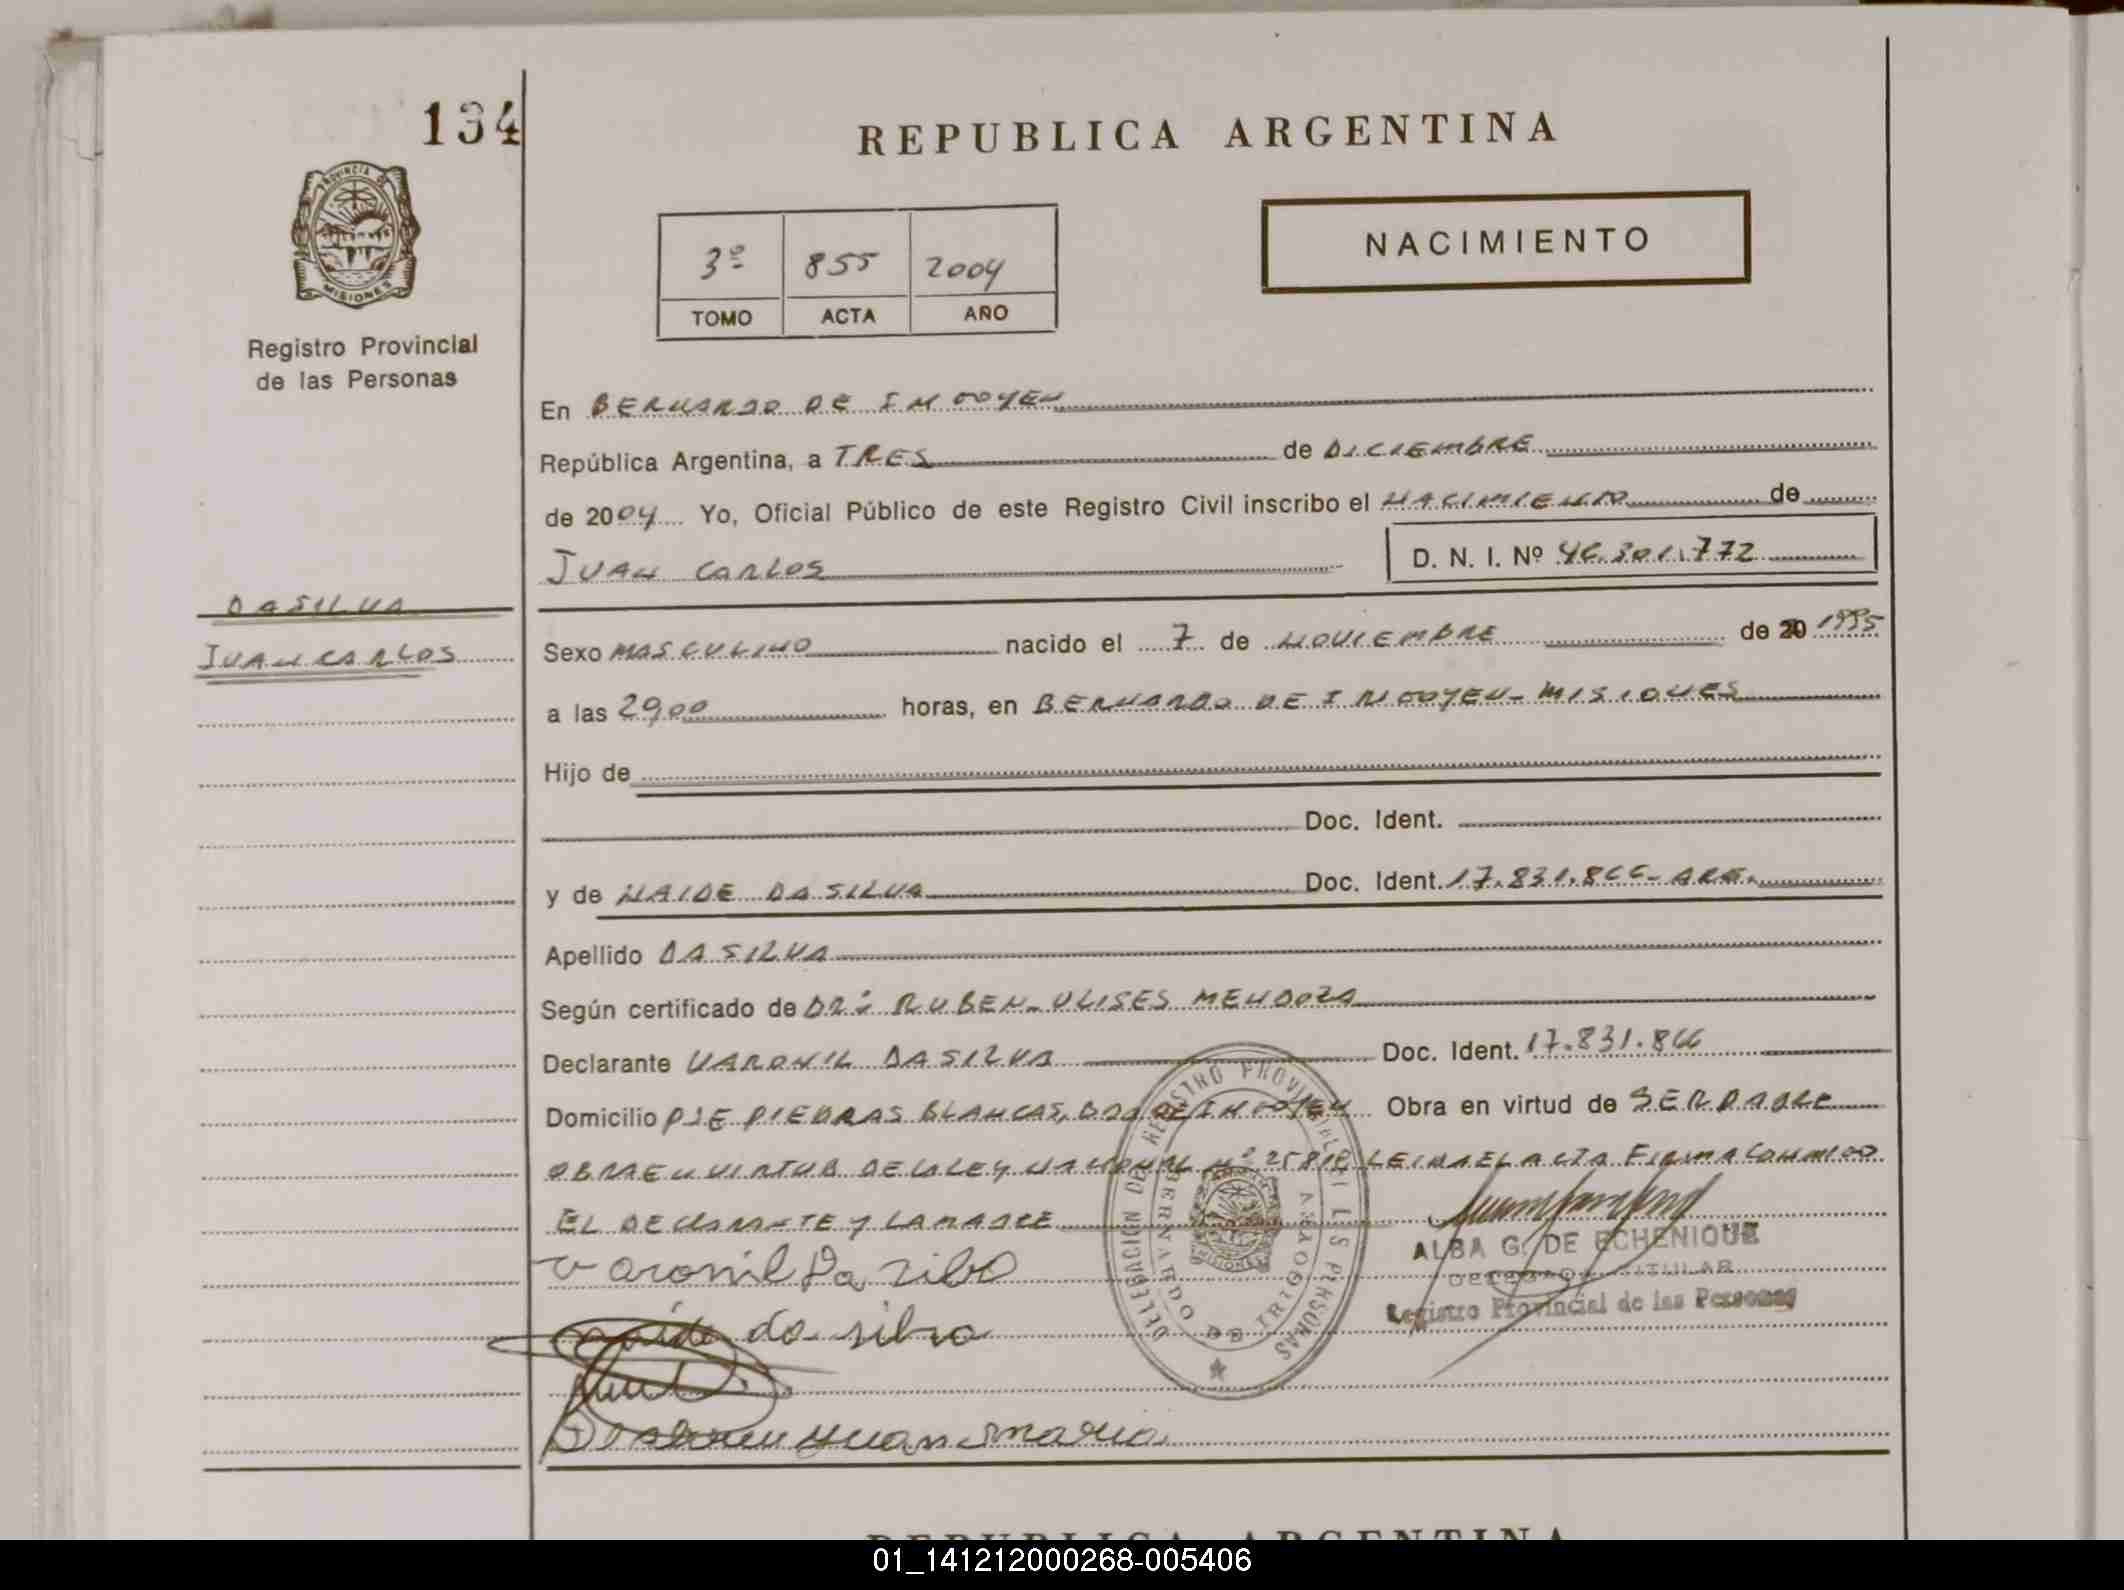 134
REPUBLICA ARGENTINA
NACIMIENTO
3º 855 2004
TOMO ACTA AÑO
PROVINCIA DE
MISIONES
Registro Provincial
de las Personas
En BERNARDO DE IRIGOYEN
República Argentina, a TRES de DICIEMBRE
de 2004 Yo, Oficial Público de este Registro Civil inscribo el NACIMIENTO de
JUAN CARLOS D. N. I. Nº 46.301.772
DASILVA
JUAN CARLOS
Sexo MASCULINO nacido el 7 de NOVIEMBRE de 20 1995
a las horas, en BERNARDO DE IRIGOYEN - MISIONES
Hijo de
Doc. Ident.
y de NAIDE DASILVA Doc. Ident. 17.831.866 - ARG.
Apellido DASILVA
Según certificado de DR: RUBEN - ULISES MENDOZA
Declarante VARONIL DASILVA Doc. Ident. 17.831.866
Domicilio PJE PIEDRAS BLANCAS, BDO DE IRIGOYEN Obra en virtud de SER PADRE
OBRA EN VIRTUD DE LA LEY NACIONAL Nº LEIDA EL ACTA FIRMA CONMIGO
EL DECLARANTE Y LA MADRE
Varonil Da silva
naide da silva
Juan Maria
ALBA G. DE ECHENIQUE
DELEGADA TITULAR
Registro Provincial de las Personas
DELEGACION DEL REGISTRO PROVINCIAL DE LAS PERSONAS
BERNARDO DE IRIGOYEN
MISIONES
REPUBLICA ARGENTINA
01_141212000268-005406